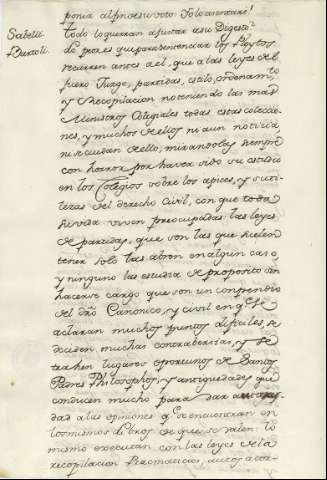 poner al pno su voto solo asentare!
Sabelli. todo lo querran ajustar a su Digesto
Bartoli. doctores que para sentenciar los Pleytos
recurren antes a el, que a las leyes del
fuero Juzgo, partidas, estilo, ordenam.to
y Recopilacion no teniendo las mas
Ministros Colegiales todas estas coleccio
nes, y muchos de ellos ni aun noticia
ni se cuidan de ello, mirandolas siempre
con horror por haver sido su estudio
en los Colegios sobre los apices, y suti
lezas del derecho Civil, con que toda
su vida viven preocupados: las leyes
de partidas, que son las que suelen
tener solo las abren en algun caso,
y ninguno las estudia de proposito sin
hacerse cargo que son un compendio
del dro Canonico, y civil en q.e se
aclaran muchos puntos dificiles, se
deciden muchas controversias, y se
trahen lugares oportunos de Santos
Padres Philosophos, y antiguedades que
conducen mucho para dar autori
dad a las opiniones q.e se encuentran en
los mismos libros de que se valen: lo
mismo executan con las leyes de la
recopilacion Pracmaticas, autos acor-